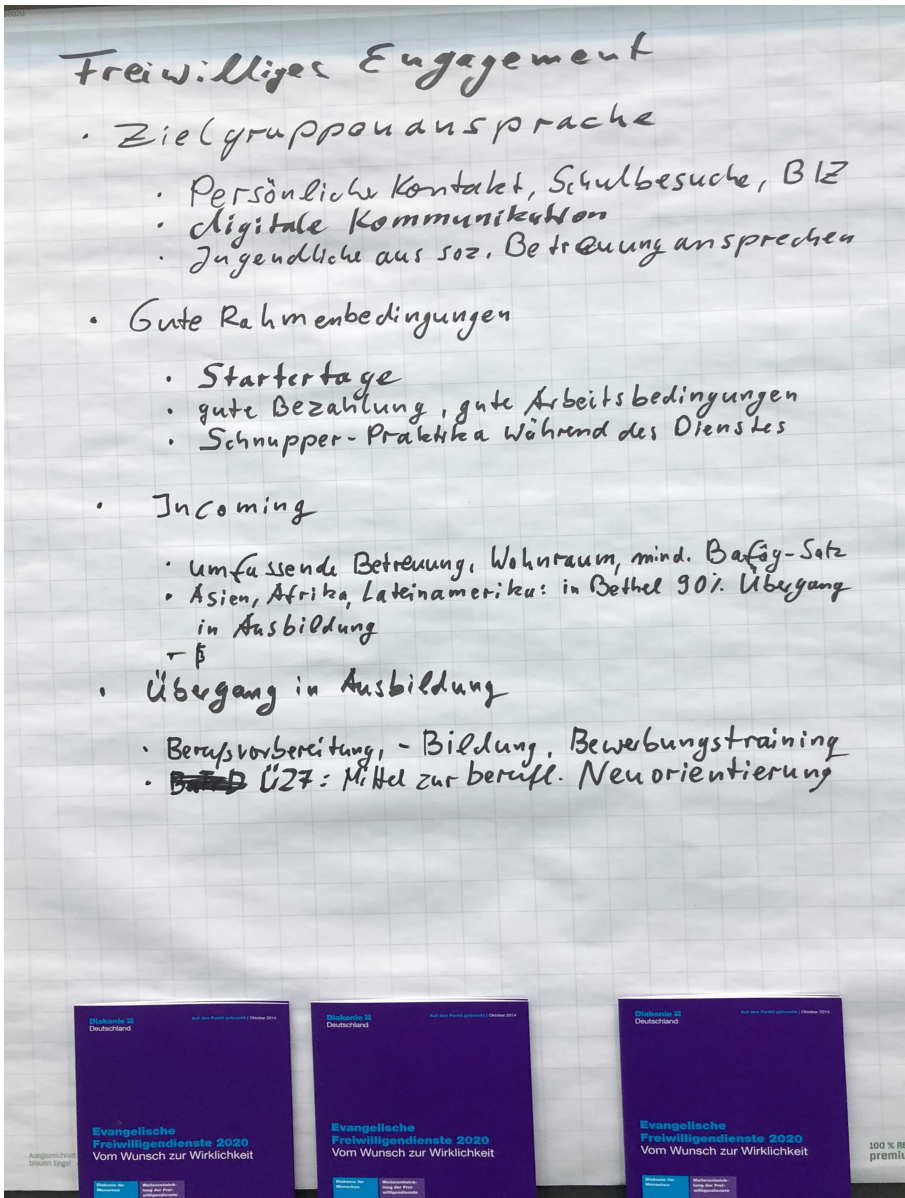 Freiwilliges Engagement
· Zielgruppenansprache
· Persönliche Kontakt, Schulbesuche, BIZ
· digitale Kommunikation
· Jugendliche aus soz. Betreuung ansprechen
· Gute Rahmenbedingungen
· Startertage
· gute Bezahlung, gute Arbeitsbedingungen
· Schnupper-Praktika während des Dienstes
· Incoming
· umfassende Betreuung, Wohnraum, mind. Bafög-Satz
· Asien, Afrika, Lateinamerika: in Bethel 90% Übergang
in Ausbildung
· Übergang in Ausbildung
· Berufsvorbereitung, -Bildung, Bewerbungstraining
· Ü27: Mittel zur berufl. Neuorientierung
Diakonie
Deutschland
Auf den Punkt gebracht | Oktober 2014
Evangelische
Freiwilligendienste 2020
Vom Wunsch zur Wirklichkeit
Diakonie für
Menschen
Weiterentwick-
lung der Frei-
willigendienste
Diakonie
Deutschland
Auf den Punkt gebracht | Oktober 2014
Evangelische
Freiwilligendienste 2020
Vom Wunsch zur Wirklichkeit
Diakonie für
Menschen
Weiterentwick-
lung der Frei-
willigendienste
Diakonie
Deutschland
Auf den Punkt gebracht | Oktober 2014
Evangelische
Freiwilligendienste 2020
Vom Wunsch zur Wirklichkeit
Diakonie für
Menschen
Weiterentwick-
lung der Frei-
willigendienste
Ausgezeichnet
blauen Engel
100 %
premiu